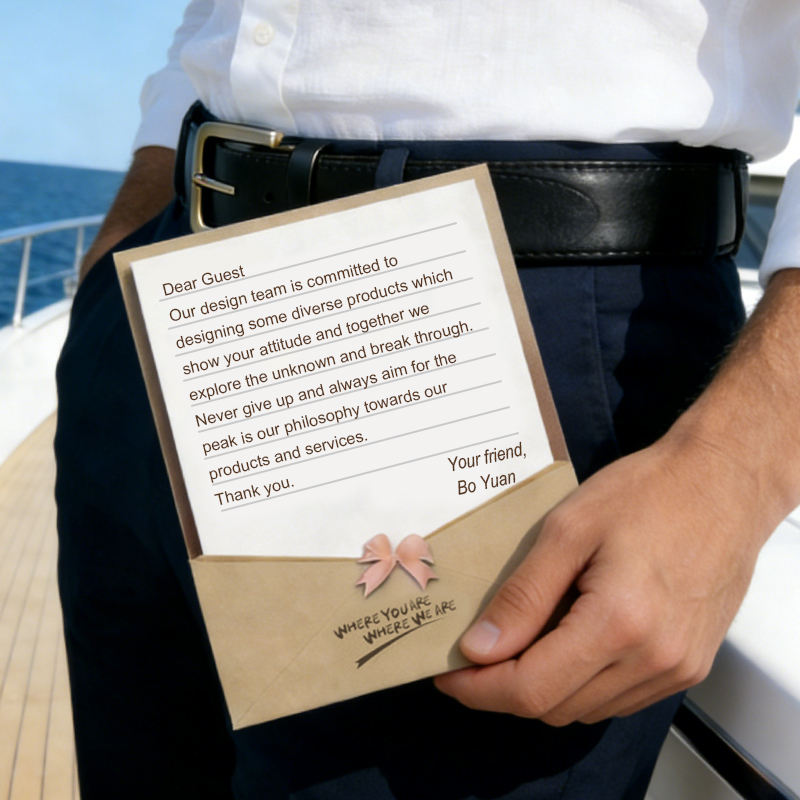 Dear Guest
Our design team is committed to
designing some diverse products which
show your attitude and together we
explore the unknown and break through.
Never give up and always aim for the
peak is our philosophy towards our
products and services.
Thank you.
Your friend,
Bo Yuan
WHERE YOU ARE
WHERE WE ARE